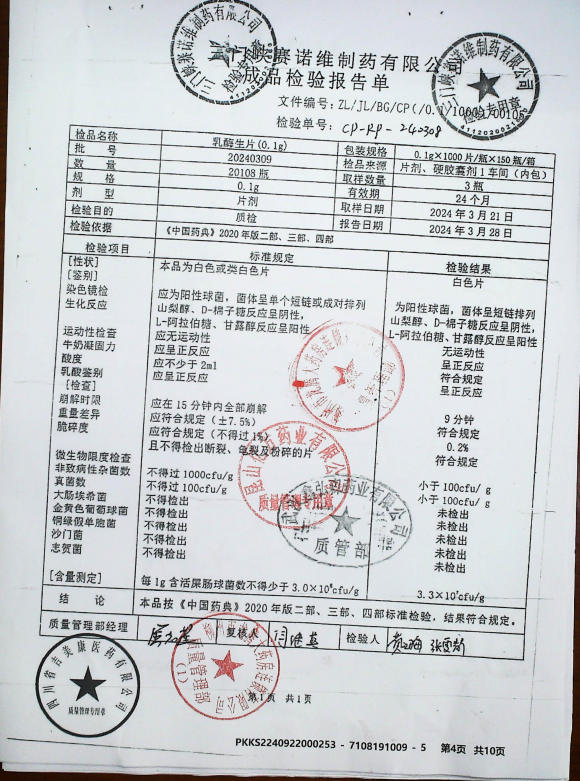 三门峡赛诺维制药有限公司
成品检验报告单
文件编号: ZL/JL/BG/CP(/0.
检验单号: CP-PP-240308
检品名称 乳酶生片(0.1g) 包装规格 0.1g×1000片/瓶×150瓶/箱
批号 20240309 检品来源 片剂、硬胶囊剂1车间(内包)
数量 20108瓶 取样数量 3瓶
规格 0.1g 有效期 24个月
剂型 片剂 取样日期 2024年3月21日
检验目的 质检 报告日期 2024年3月28日
检验依据 《中国药典》2020年版二部、三部、四部
检验项目 标准规定 检验结果
[性状] 本品为白色或类白色片 白色片
[鉴别]
染色镜检 应为阳性球菌, 菌体呈单个短链或成对排列 为阳性球菌, 菌体呈短链排列
生化反应 山梨醇、D-棉子糖反应呈阴性, 山梨醇、D-棉子糖反应呈阴性,
L-阿拉伯糖、甘露醇反应呈阳性 L-阿拉伯糖、甘露醇反应呈阳性
运动性检查 应无运动性 无运动性
牛奶凝固力 应呈正反应 呈正反应
酸度 应不少于2ml 符合规定
乳酸鉴别 应呈正反应 呈正反应
[检查]
崩解时限 应在15分钟内全部崩解 9分钟
重量差异 应符合规定(±7.5%) 符合规定
脆碎度 应符合规定(不得过1%) 0.2%
且不得检出断裂、龟裂及粉碎的片 符合规定
微生物限度检查
非致病性杂菌数 不得过1000cfu/g 小于100cfu/g
真菌数 不得过100cfu/g 小于100cfu/g
大肠埃希菌 不得检出 未检出
金黄色葡萄球菌 不得检出 未检出
铜绿假单胞菌 不得检出 未检出
沙门菌 不得检出 未检出
志贺菌 不得检出 未检出
[含量测定] 每1g含活屎肠球菌数不得少于3.0×10⁶cfu/g 3.3×10⁷cfu/g
结论 本品按《中国药典》2020年版二部、三部、四部标准检验, 结果符合规定。
质量管理部经理 复核人 检验人
第1页 共1页
三门峡赛诺维制药有限公司
检验专用章
4112020021900
昆山 药业有限公司
质量管理专用章
药业有限公司
质管部
质量管理部
(1)
四川省吉美康医药有限公司
质量管理专用章
PKKS2240922000253 - 7108191009 - 5 第4页 共10页